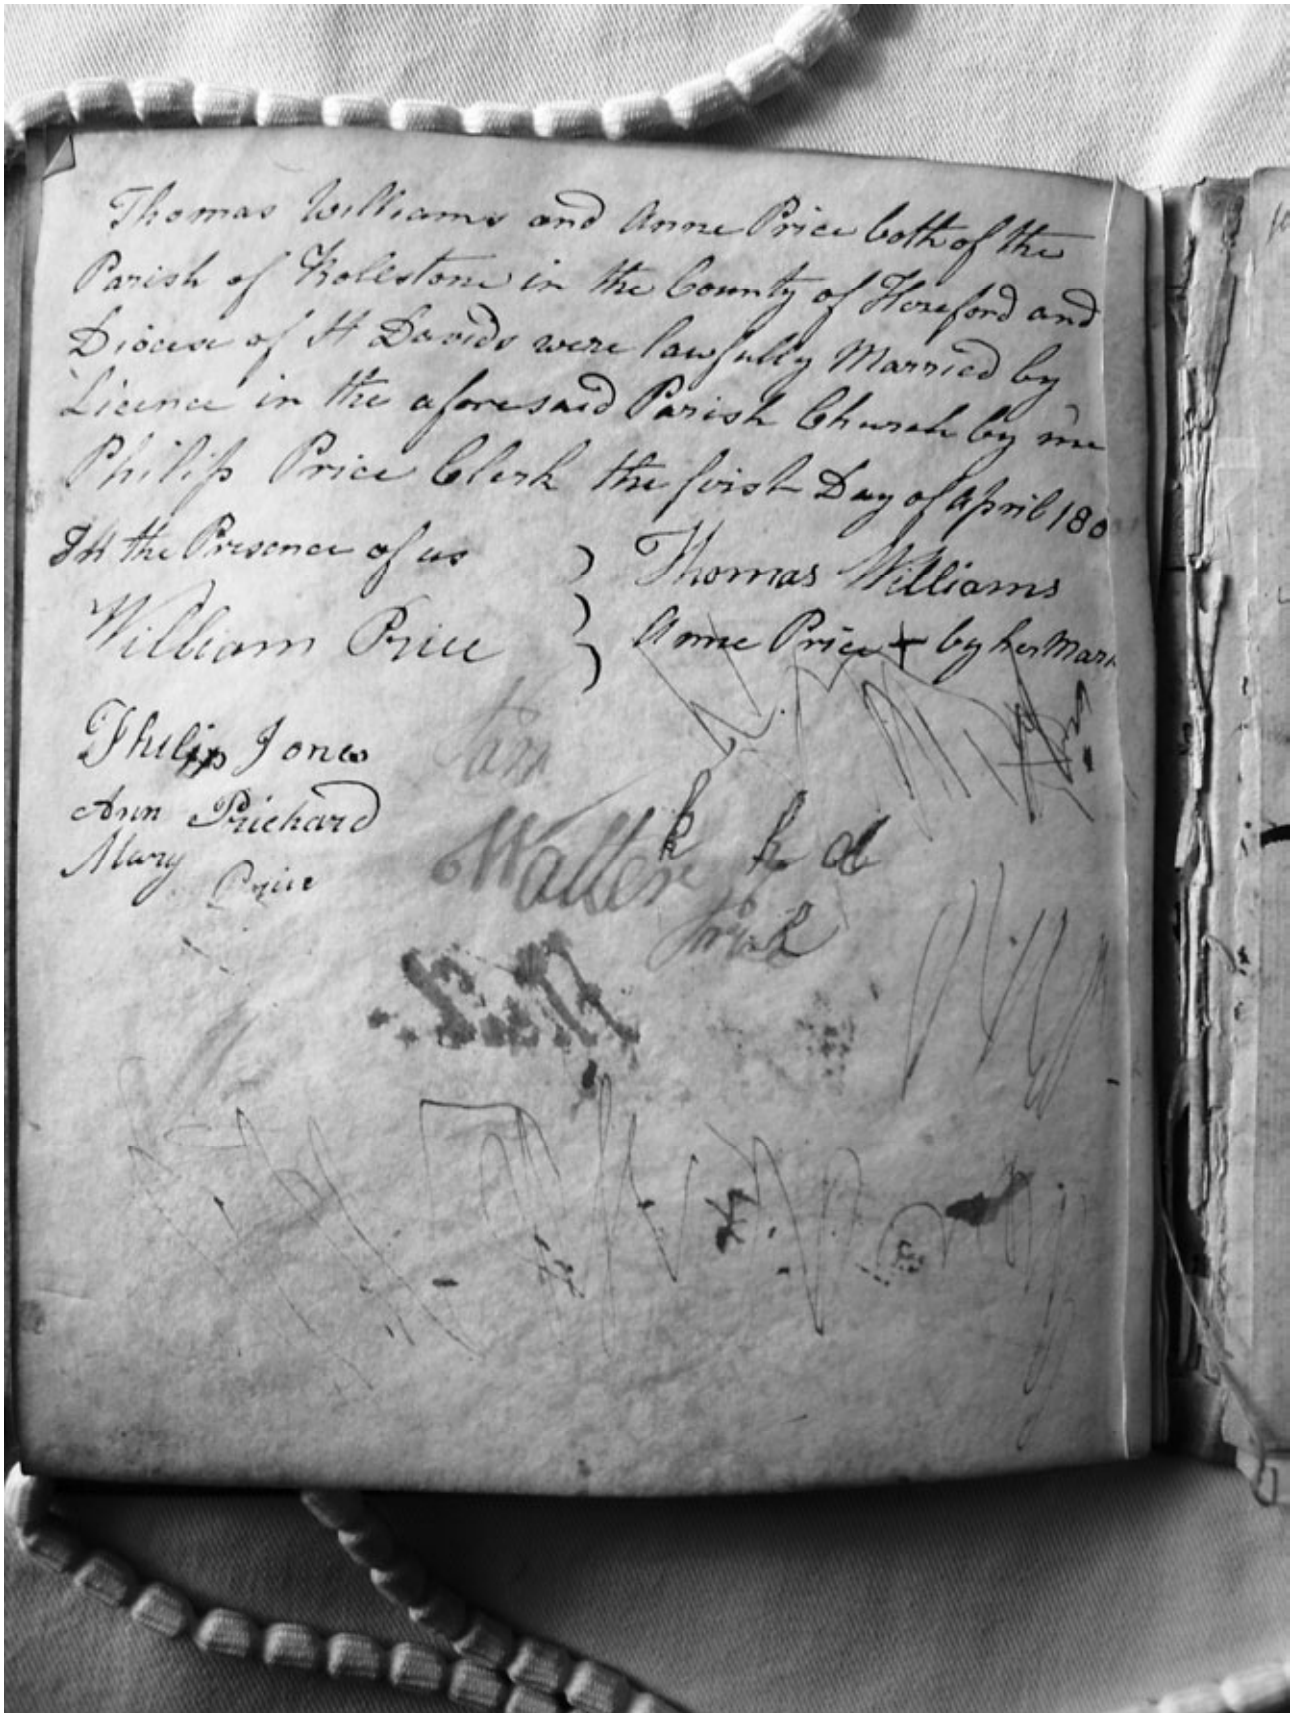 Thomas Williams and Anne Price both of the
Parish of Rollstone in the County of Hereford and
Diocese of St Davids were lawfully Married by
Licence in the aforesaid Parish Church by me
Philip Price Clerk the first Day of April 180
In the Presence of us
Thomas Williams
William Price
Anne Price + by her Mark
Philip Jones
Ann Prichard
Mary
Price
Walter
k k d